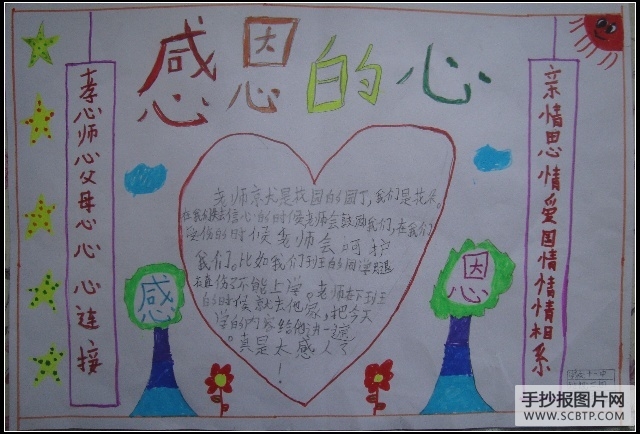 感恩的心
孝心师心父母心心心连接
亲情恩情爱国情情情相系
老师亲尤是花园的园丁,我们是花朵。
在我们失去信心的时候老师会鼓励我们,在我们
受伤的时候老师会呵护
我们。比如我们班的同学腿
受伤了不能上学。老师在下班
的时候就去他家,把今天
学的内容给他讲一遍
。真是太感人了
!
感
恩
手抄报图片网
WWW.SCBTP.COM